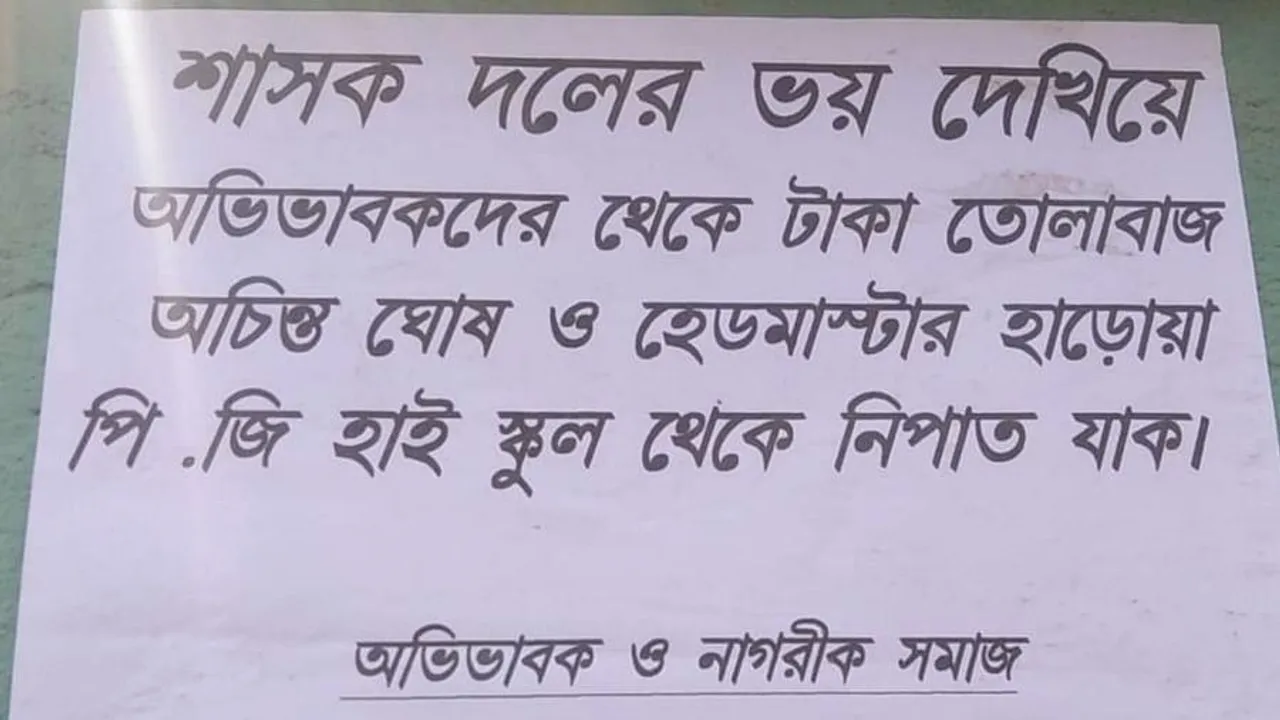 শাসক দলের ভয় দেখিয়ে
অভিভাবকদের থেকে টাকা তোলাবাজ
অচিন্ত ঘোষ ও হেডমাস্টার হাড়োয়া
পি .জি হাই স্কুল থেকে নিপাত যাক।
অভিভাবক ও নাগরীক সমাজ